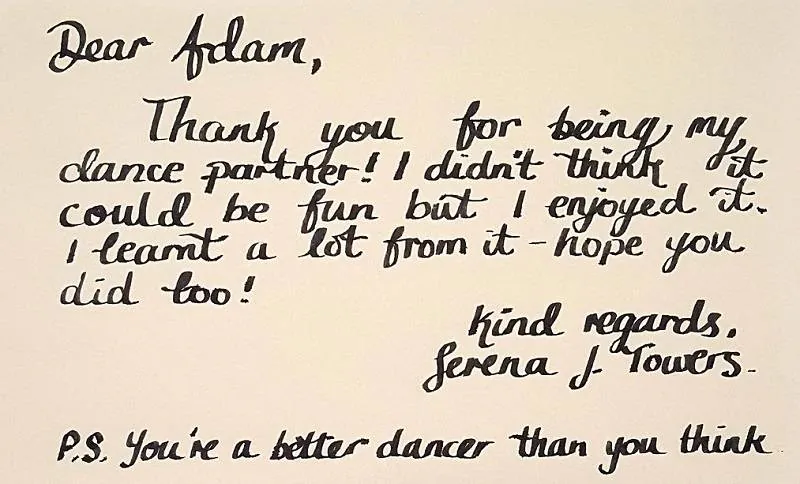 Dear Adam,
Thank you for being my
dance partner! I didn't think it
could be fun but I enjoyed it.
I learnt a lot from it - hope you
did too!
Kind regards,
Serena J. Towers.
P.S. You're a better dancer than you think